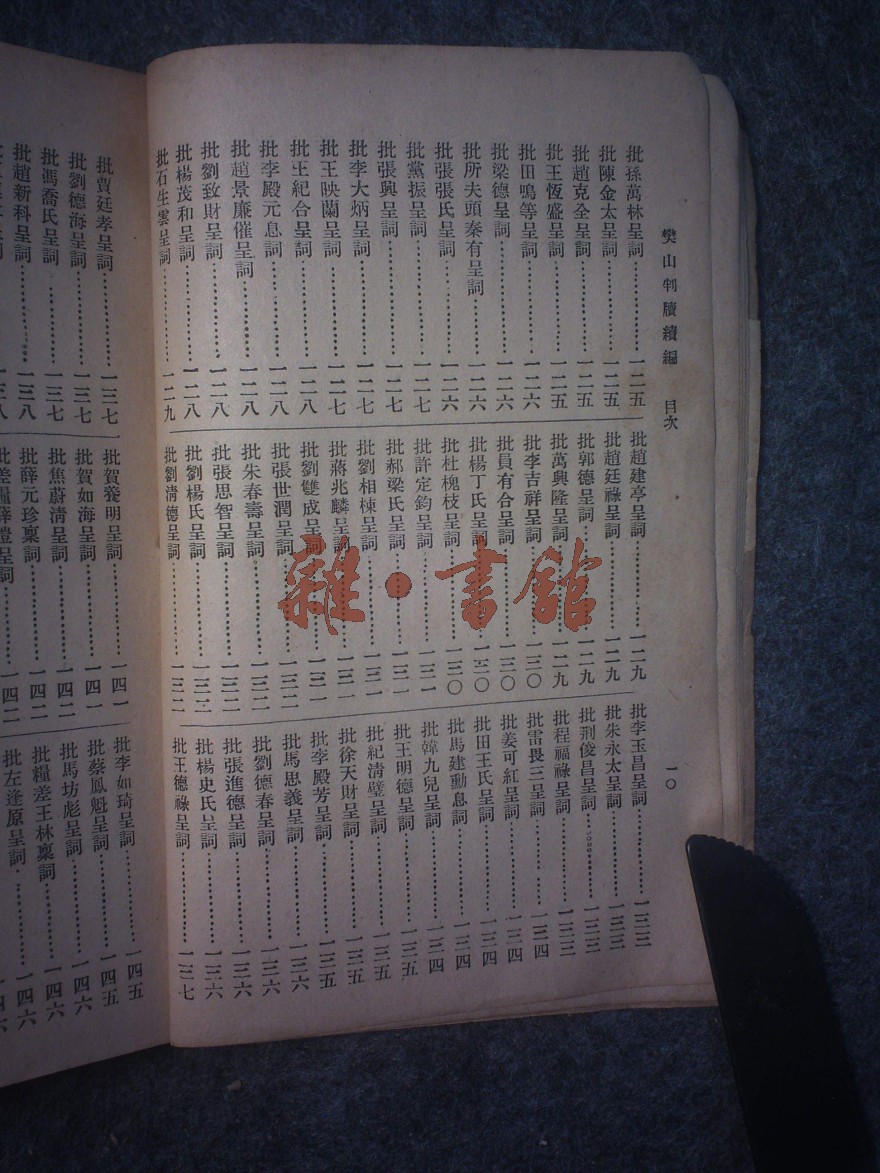 樊山判牘續編 目次
一〇
批孫萬林呈詞 一二五
批陳金太呈詞 一二五
批趙克全呈詞 一二五
批王恆盛呈詞 一二五
批田鳴等呈詞 一二六
批梁德呈詞 一二六
批所夫頭秦有呈詞 一二六
批張張氏呈詞 一二六
批黨振呈詞 一二七
批張興呈詞 一二七
批李大炳呈詞 一二七
批王映蘭呈詞 一二七
批王紀合呈詞 一二八
批李殿元息詞 一二八
批趙景廉催呈詞 一二八
批劉致財呈詞 一二八
批楊茂和呈詞 一二八
批石生雲呈詞 一二九
批趙建亭呈詞 一二九
批趙廷祿呈詞 一二九
批郭德呈詞 一二九
批萬興隆呈詞 一二九
批李吉祥呈詞 一三〇
批員有合呈詞 一三〇
批楊丁氏呈詞 一三〇
批杜槐枝呈詞 一三〇
批許定鈞呈詞 一三一
批郝梁氏呈詞 一三一
批劉相棟呈詞 一三一
批蔣兆麟呈詞 一三一
批劉雙成呈詞 一三一
批張世潤呈詞 一三二
批朱春壽呈詞 一三二
批張思智呈詞 一三二
批劉楊氏呈詞 一三二
批劉淸德呈詞 一三二
批李玉昌呈詞 一三三
批朱永太呈詞 一三三
批荆俊昌呈詞 一三三
批程福祿呈詞 一三三
批雷畏三呈詞 一三四
批姜可紅呈詞 一三四
批田王氏呈詞 一三四
批馬建勳息詞 一三四
批韓九兒呈詞 一三四
批王明德呈詞 一三五
批紀淸璧呈詞 一三五
批徐天財呈詞 一三五
批李殿芳呈詞 一三五
批馬思義呈詞 一三六
批劉德春呈詞 一三六
批張進德呈詞 一三六
批楊史氏呈詞 一三六
批王德祿呈詞 一三七
批賈廷孝呈詞 一三七
批劉德海呈詞 一三七
批馮喬氏呈詞 一三七
批趙新科呈詞 一三八
批賀養明呈詞 一四一
批賀如海呈詞 一四一
批焦蔚淸呈詞 一四二
批薛元珍稟詞 一四二
批李如琦呈詞 一四五
批蔡鳳魁呈詞 一四五
批馬坊彪呈詞 一四六
批糧差王林稟詞 一四六
批左逢原呈詞 一四六
雜·書館